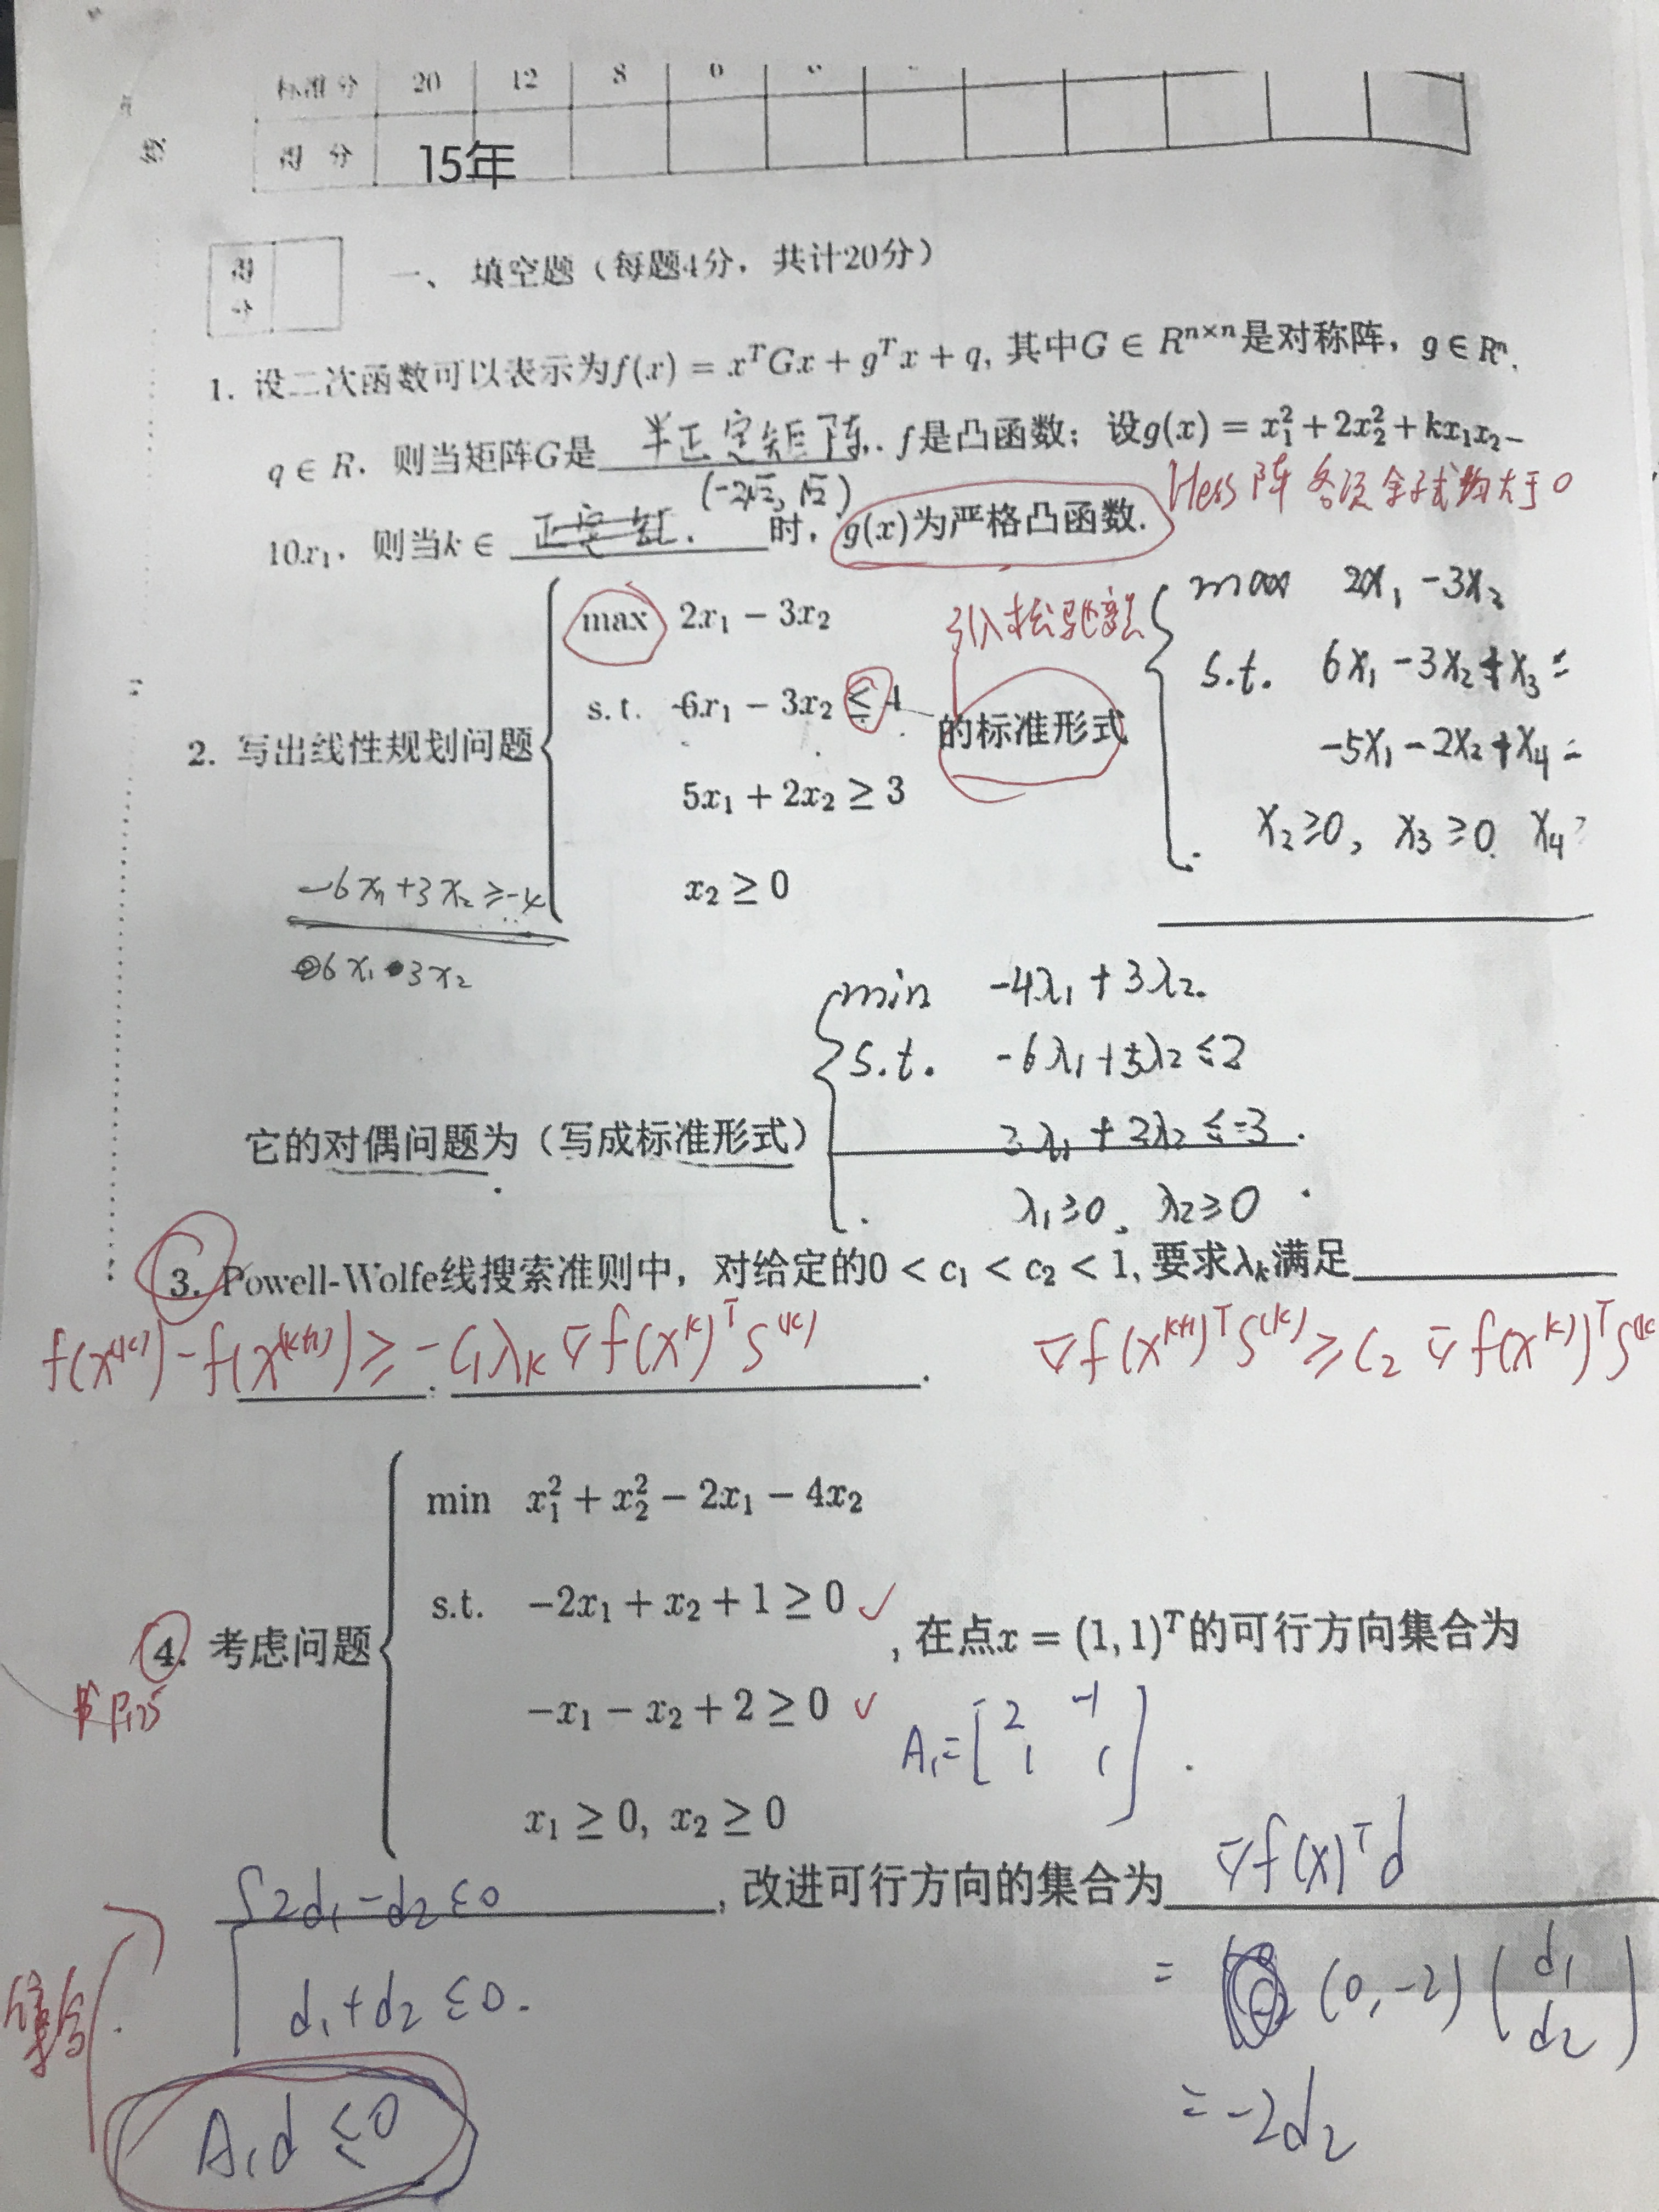 标准分 20 12 8
得 分 15年
得分
一、 填空题（每题4分，共计20分）
1. 设二次函数可以表示为f(x) = x^T Gx + g^T x + q, 其中G ∈ R^{n×n}是对称阵，g ∈ R^n,
q ∈ R. 则当矩阵G是 半正定矩阵. f是凸函数；设g(x) = x_1^2 + 2x_2^2 + kx_1x_2 −
(-2√2, √2) Hess 阵 各项 余子式 均大于0
10x_1, 则当k ∈ 正定矩. 时，g(x)为严格凸函数.
2. 写出线性规划问题
max 2x_1 − 3x_2
s.t. -6x_1 − 3x_2 ≤ 4
5x_1 + 2x_2 ≥ 3
x_2 ≥ 0
的标准形式
引入松驰
max 2x_1 -3x_2
s.t. 6x_1 -3x_2 +x_3 =
-5x_1 -2x_2 +x_4 =
x_2 ≥0, x_3 ≥0. x_4
-6x_1+3x_2 ≥-4
6x_1 3x_2
它的对偶问题为（写成标准形式）
min -4λ_1 + 3λ_2.
s.t. -6λ_1 +5λ_2 ≤2
3λ_1 + 2λ_2 ≤-3.
λ_1≥0, λ_2≥0
3. Powell-Wolfe线搜索准则中，对给定的0 < c_1 < c_2 < 1, 要求λ_k满足
f(x^{(k)}) - f(x^{(k+1)}) ≥ -C_1λ_k ∇f(x^k)^T S^{(k)} . ∇f(x^{k+1})^T S^{(k)} ≥ C_2 ∇f(x^{k)})^T S^{(k}
4. 考虑问题
min x_1^2 + x_2^2 − 2x_1 − 4x_2
s.t. −2x_1 + x_2 + 1 ≥ 0 ✓
−x_1 − x_2 + 2 ≥ 0 ✓
x_1 ≥ 0, x_2 ≥ 0
, 在点x = (1, 1)^T的可行方向集合为
P125
A_1 = [2 -1
1 1] .
2d_1 -d_2 ≤0 , 改进可行方向的集合为 ∇f(x)^T d
d_1+d_2 ≤0.
= (0,-2) (d_1
d_2)
= -2d_2
集合
A_1d ≤0